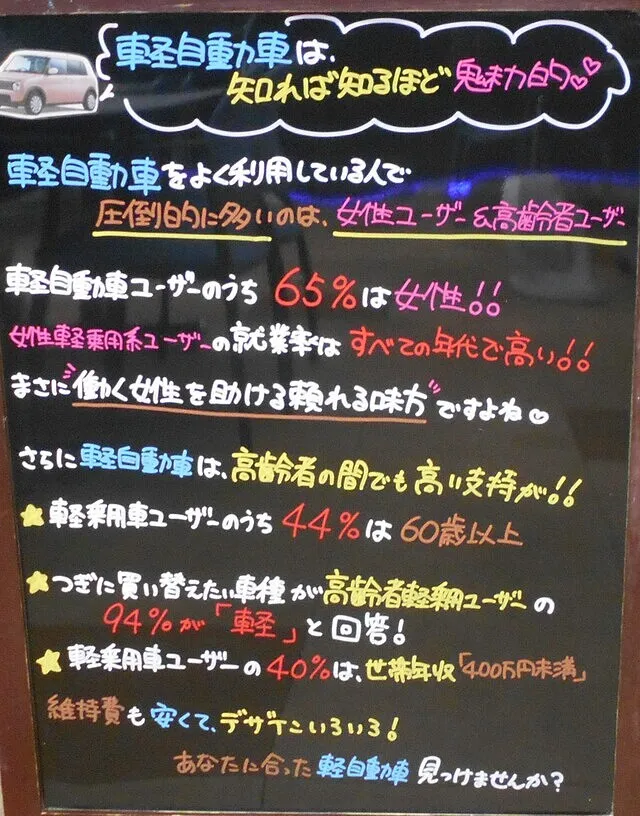 軽自動車は、
知れば知るほど魅力的♡♡
軽自動車をよく利用している人で
圧倒的に多いのは、女性ユーザー&高齢者ユーザー
軽自動車ユーザーのうち65%は女性!!
女性軽乗用系ユーザーの就業率はすべての年代で高い!!
まさに"働く女性を助ける頼れる味方"ですよね♡
さらに軽自動車は、高齢者の間でも高い支持が!!
★軽乗用車ユーザーのうち44%は60歳以上
★つぎに買い替えたい車種が高齢者軽乗用ユーザーの
94%が「軽」と回答!
★軽乗用車ユーザーの40%は、世帯年収「400万円未満」
維持費も安くて、デザインいろいろ!
あなたに合った軽自動車見つけませんか?